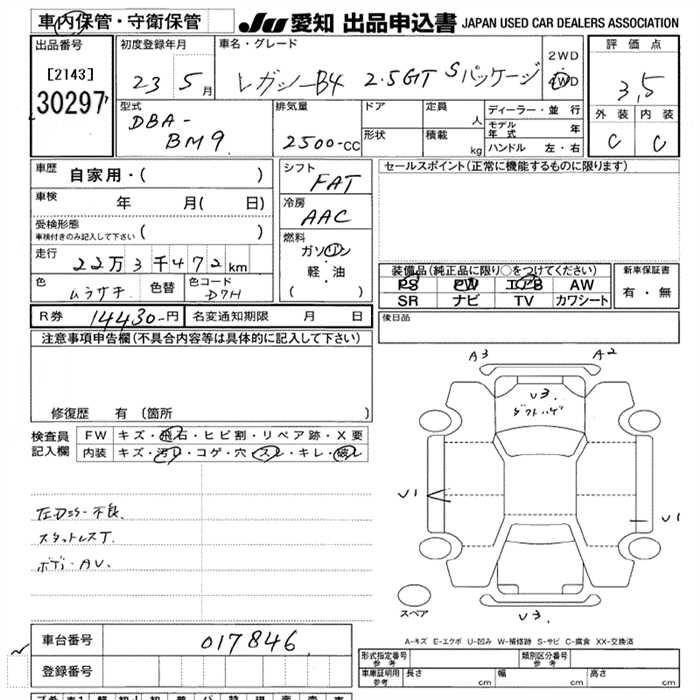 車内保管・守衛保管
JU 愛知 出品申込書 JAPAN USED CAR DEALERS ASSOCIATION
出品番号
[2143]
30297
初度登録年月
23 5月
車名・グレード
レガシーB4 2.5GT Sパッケージ
2WD
4WD
評価点
3,5
外装 内装
C C
型式
DBA-
BM9
排気量
2500-CC
ドア
形状
定員
人
積載
kg
ディーラー・並行
モデル年式 年
ハンドル 左・右
車歴
自家用・( )
車検
年 月( 日)
受検形態
車検付きのみ記入して下さい ( )
走行
22万3千472km
色
ムラサキ
色替
色コード
D7H
シフト
FAT
冷房
AAC
燃料
ガソリン
軽・油
( )
セールスポイント(正常に機能するものに限ります)
装備品(純正品に限り○をつけてください)
PS PW エアB AW
SR ナビ TV カワシート
新車保証書
有・無
R券 14430-円
名変通知期限 月 日
後日品
注意事項申告欄(不具合内容等は具体的に記入して下さい)
修復歴 有 〔箇所 〕
検査員
記入欄
FW キズ・飛石・ヒビ割・リペア跡・X要
内装 キズ・汚レ・コゲ・穴・スレ・キレ・破レ
不良
スタットレスT.
ボディ-AU.
A3
A2
U3.
U1
U1
U3.
スペア
A-キズ E-エクボ U-凹み W-補修跡 S-サビ C-腐食 XX-交換済
車台番号
017846
登録番号
形式指定番号
参考
類別区分番号
参考
車庫証明用
参考
長さ cm
幅 cm
高さ cm